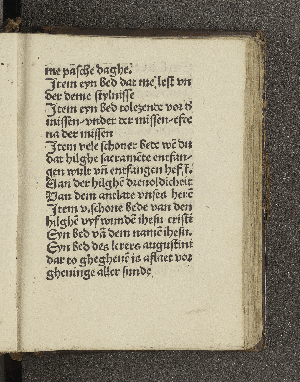 me pāsche daghe.
Item eyn bed dat me lest vn
der deme stylnisse
Item eyn bed tolezende vor d'
missen vnder der missen efte
na der missen
Item vele schoner bede wē du
dat hilghe sacramēte entfan-
gen wult vn̄ entfangen hefst.
Van der hilghē dreuoldicheit
Van dem antlate vnses herē
Item v. schone bede van den
hilghē vyf wundē ihesu cristi
Eyn bed vā dem namē ihesu.
Eyn bed des lerers augustini
dar to ghegheuē is aflaet vor
gheuinge aller sunde